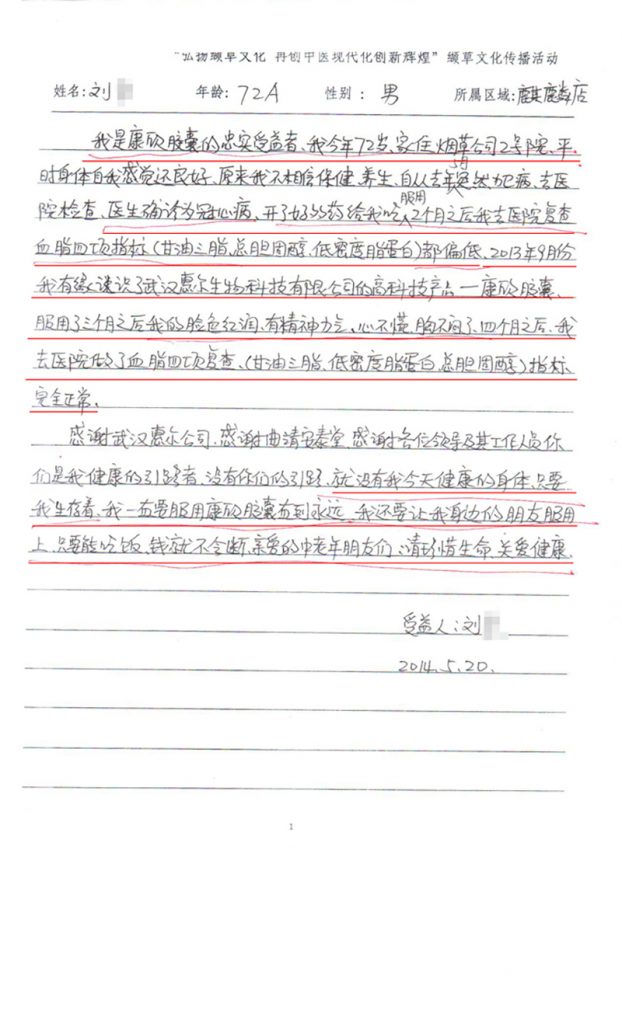 “弘扬缬草文化 再创中医现代化创新辉煌” 缬草文化传播活动
姓名:刘 年龄:72A 性别:男 所属区域:麒麟店
我是康欣胶囊的忠实受益者、我今年72岁、家住烟草公司2号院、平
时身体自我感觉还良好、原来我不相信保健、养生、自从去年5月突然犯病、去医
院检查、医生确诊为冠心病、开了好的药给我吃、服用2个月之后我去医院复查
血脂四项指标(甘油三脂、总胆固醇、低密度脂蛋白)都偏低、2013年9月份
我有缘认识了武汉惠尔生物科技有限公司的高科技产品—康欣胶囊、
服用了三个月之后我的脸色红润、有精神力气、心不慌、胸不闷了、四个月之后、我
去医院做了血脂四项复查、(甘油三脂、低密度脂蛋白、总胆固醇)指标
完全正常。
感谢武汉惠尔公司、感谢曲靖安泰堂、感谢各位领导及其工作人员你
们是我健康的引路者、没有你们的引路、就没有我今天健康的身体、只要
我生存着、我一直要服用康欣胶囊直到永远、我还要让我身边的朋友服用
上、只要能吃饭、钱就不会断、亲爱的中老年朋友们、请珍惜生命、关爱健康、
受益人:刘
2014.5.20.
1